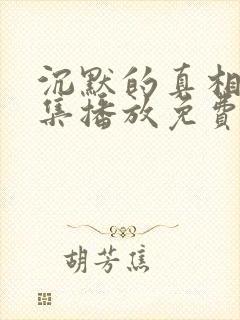 沉默的真相
集播放免费
胡芳焦